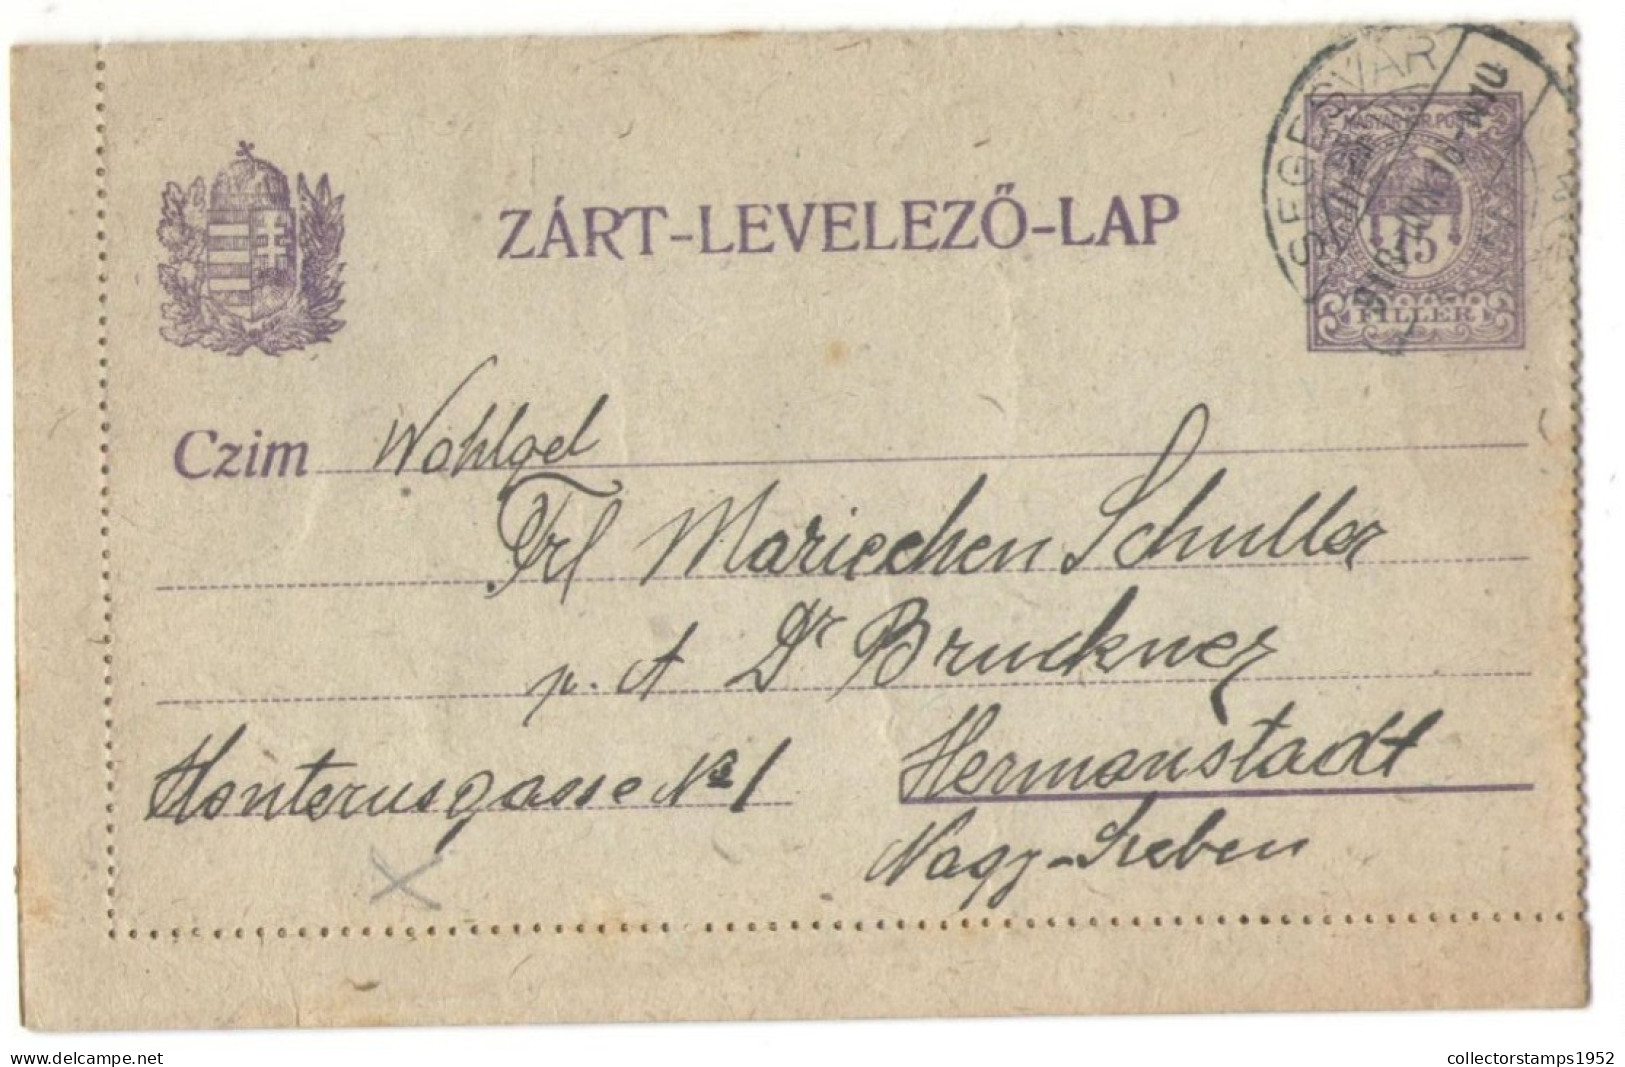 ZÁRT-LEVELEZŐ-LAP
SEGESVÁR
MAGYAR KIR. POSTA
15
FILLER
Czim Wohlgel
Frl Mariechen Schuller
p. A Dr Bruckner
Honterusgasse No 1 Hermanstadt
Nagy-Szeben
collectorstamps1952